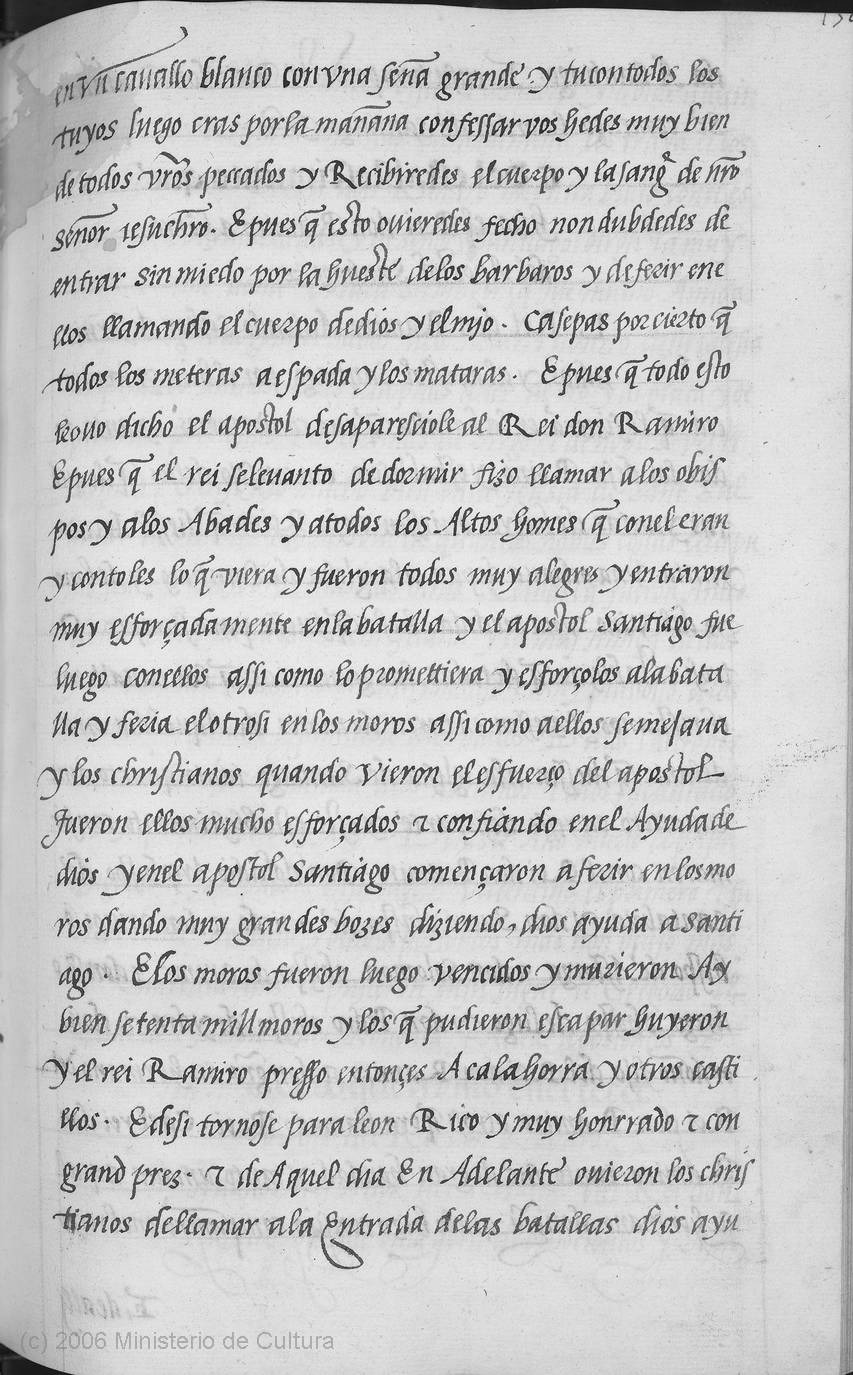 en vn cauallo blanco con vna seña grande y tu con todos los
tuyos luego cras por la mañana confessar vos hedes muy bien
de todos vr̃os peccados y Recibiredes el cuerpo y la sang̃ de nr̃o
señor iesuchr̃o. E pues q̃ esto ouieredes fecho non dubdedes de
entrar sin miedo por la hueste de los barbaros y de ferir ene
llos llamando el cuerpo de dios y el mjo. Ca sepas por cierto q̃
todos los meteras a espada y los mataras. E pues q̃ todo esto
ouo dicho el apostol desaparesciole al Rei don Ramiro
E pues q̃ el rei se leuanto de dormir fizo llamar a los obis
pos y a los Abades y a todos los Altos homes q̃ con el eran
y contoles lo q̃ viera y fueron todos muy alegres y entraron
muy esforçadamente en la batalla y el apostol Santiago fue
luego con ellos assi como lo promettiera y esforçolos a la bata
lla y feria el otrosi en los moros assi como a ellos semejaua
y los christianos quando vieron el esfuerço del apostol
fueron ellos mucho esforçados τ confiando en el Ayuda de
dios y en el apostol Santiago començaron a ferir en los mo
ros dando muy grandes bozes diziendo, dios ayuda a santi
ago. E los moros fueron luego vencidos y murieron Ay
bien setenta mill moros y los q̃ pudieron escapar huyeron
y el rei Ramiro presso entonçes A calahorra y otros casti
llos. E desi tornose para leon Rico y muy honrrado τ con
grand prez. τ de Aquel dia En Adelante ouieron los chris
tianos de llamar a la Entrada de las batallas dios ayu
(c) 2006 Ministerio de Cultura